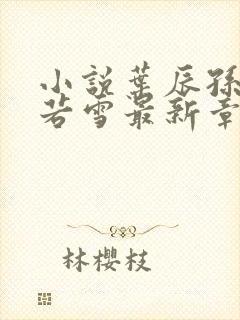 小說葉辰孫
若雪最新章
林櫻枝